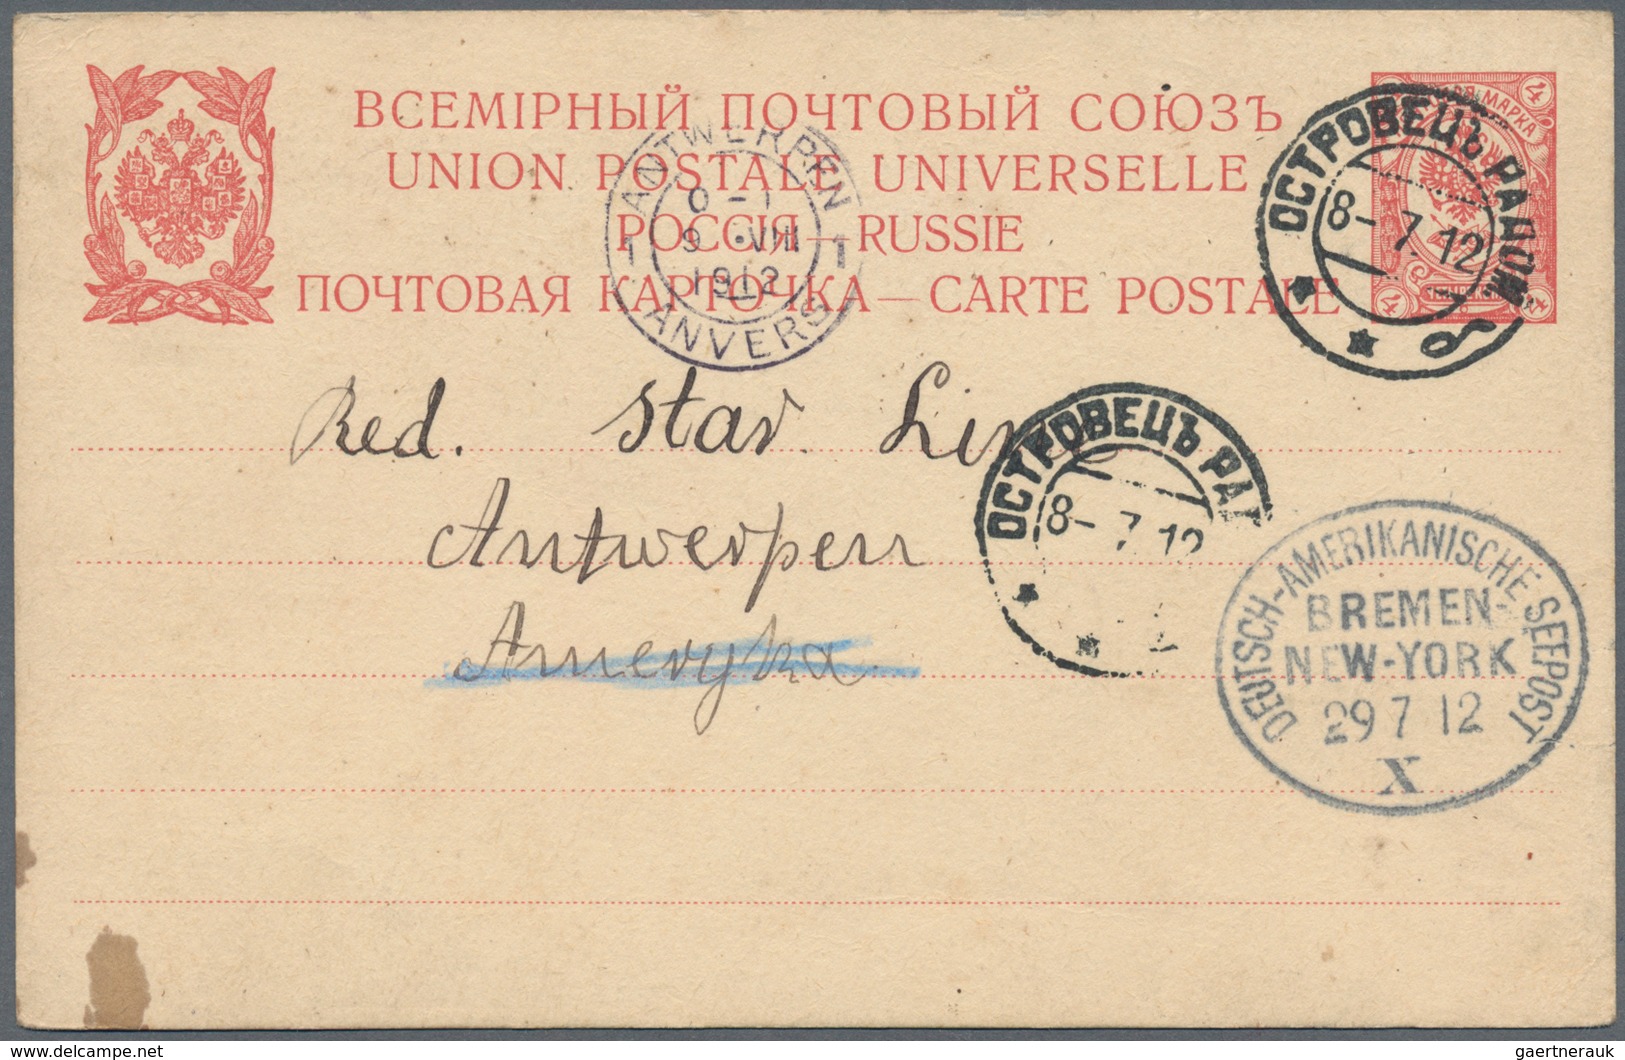 ВСЕМІРНЫЙ ПОЧТОВЫЙ СОЮЗЪ
UNION POSTALE UNIVERSELLE
РОССІЯ—RUSSIE
ПОЧТОВАЯ КАРТОЧКА—CARTE POSTALE
4 МАРКА 4
4
ОСТРОВЕЦЪ РАДОМ
8- 7 12
б
ANTWERPEN
1 9 VIII 1
1912
ANVERS
Red. Star Line
Antwerpen
Ameryka
ОСТРОВЕЦЪ РА
8- 7 12
DEUTSCH-AMERIKANISCHE SEEPOST
BREMEN-
NEW-YORK
29 7 12
X
delcampe.net
gaertnerauk